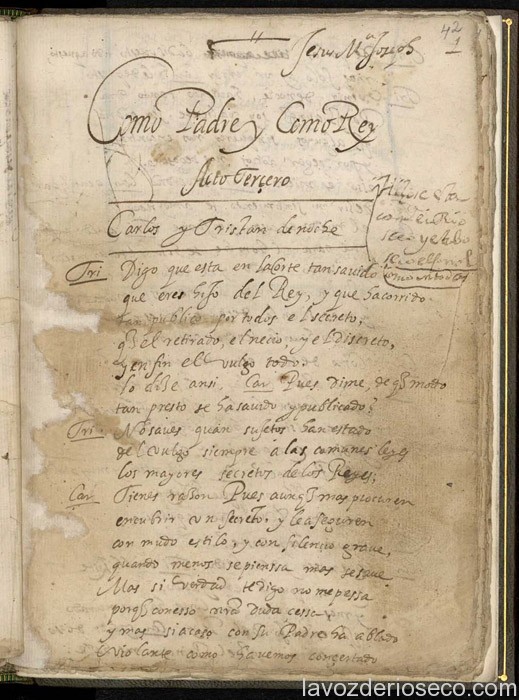 Jesus Mª Joseph
42
1
Como Padre y Como Rey
Acto terçero
Carlos y Tristan de noche
Tri Digo que esta en la Corte tan savido
que eres hijo del Rey, y que ha corrido
tan publico por todos el secreto,
el retirado, el necio, y el Discreto,
y en fin el vulgo todo
lo dise ansi, Car Pues dime, de q modo
tan presto se ha savido y publicado?
Tri No saves quan sujetos han estado
del vulgo siempre a las comunes leyes
los mayores secretos de los Reyes;
Car Tienes rason Pues aunq mas procuren
encubrir un secreto, y le aseguren
con mudo estilo, y con silencio grave,
quando menos se piensa mas se save
Mas si verdad te digo no me pessa
porq con esso mi duda cessa
y mas si acaso con su Padre ha ablado
Violante como havemos conçertado
lavozderioseco.com